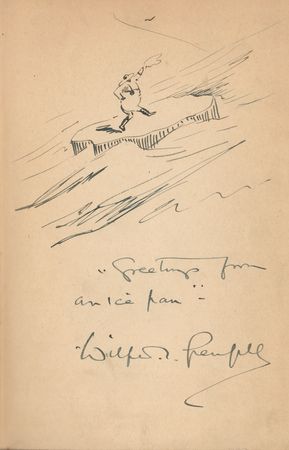 "Greetings from
an ice pan"
Wilfred Grenfell